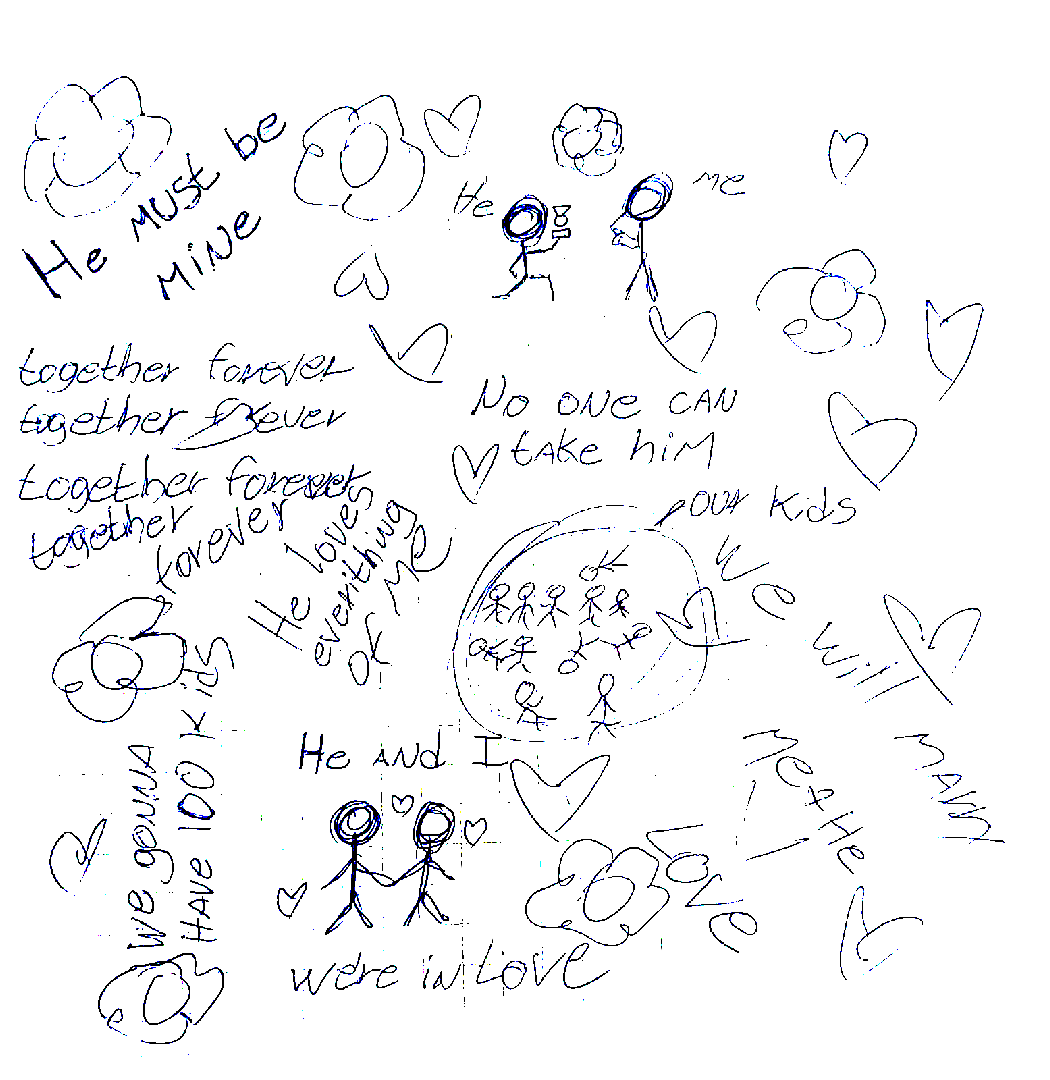 He MUST be
MINE
He
me
together forever
together forever
together forever
together
forever
No ONE CAN
tAKE hiM
OUR Kids
He loves
everithing
OF Me
We
will
MARRY
We GONNA
HAVE 100 Kids
He AND I
We're IN LOVE
Me + He
Love